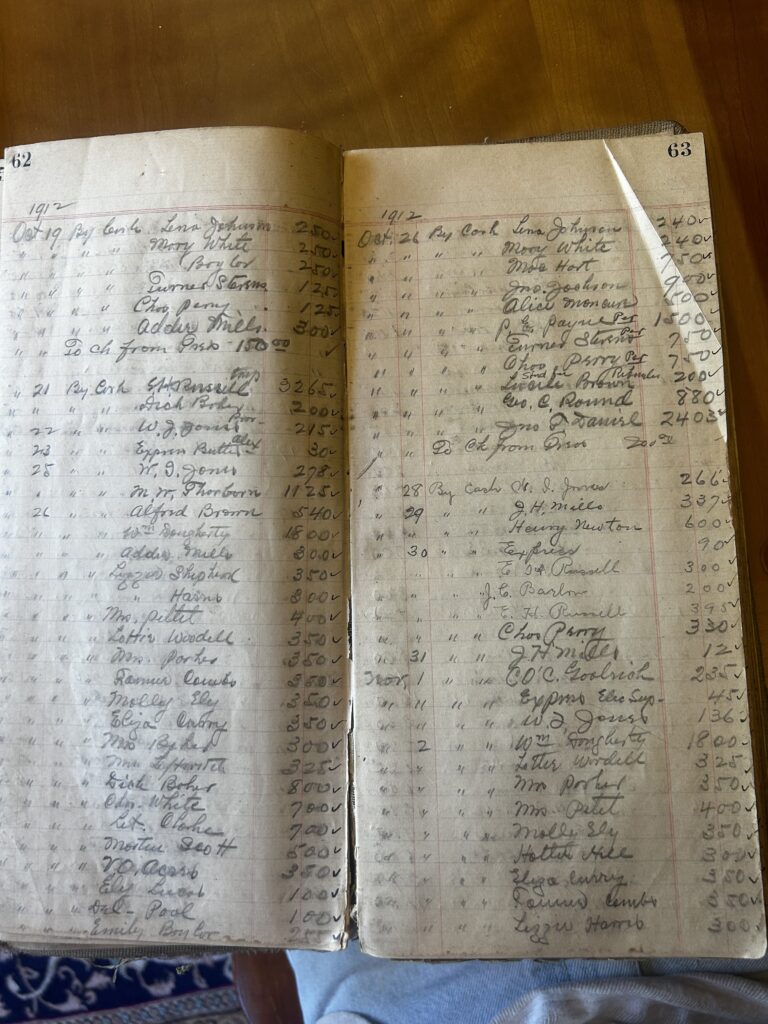 62
1912
Oct 19 By Cash Lena Johnson 250 ✓
" " " " Mary White 250 ✓
" " " " Baylor 250 ✓
" " " " Turner Stevens 125 ✓
" " " " Chas Perry 125 ✓
" " " " Addie Mills. 300 ✓
" " To ch from Pres 150 00 ✓
" 21 By Cash E H Russell 3265 ✓
" " " " Dick Boher 200 ✓
" 22 " " W. J. Jones 215 ✓
" 23 " " Express 30 ✓
" 25 " " W. J. Jones 278 ✓
" " " " M. W. Thorborn 1125 ✓
" 26 " " Alford Brown 540 ✓
" " " " Wm Dougherty 1800 ✓
" " " " Addie Mills 300 ✓
" " " " Lizzie Shepherd 350 ✓
" " " " " Harris 300 ✓
" " " " Mrs. Petet 400 ✓
" " " " Lottie Woodell 350 ✓
" " " " Mrs Parker 350 ✓
" " " " Fannie Combs 350 ✓
" " " " Molly Ely 350 ✓
" " " " Eliza Curry 350 ✓
" " " " Mrs 300 ✓
" " " " Mrs 325 ✓
" " " " Dick Boher 800 ✓
" " " " White 700 ✓
" " " " 700 ✓
" " " " Scott 500 ✓
" " " " 350 ✓
" " " " Ely 100 ✓
" " " " Pool 100 ✓
" " " " Emily Baylor
63
1912
Oct. 26 By Cash Lena Johnson 240 ✓
" " " " Mary White 240 ✓
" " " " Hart 750 ✓
" " " " Jno. Jackson 900 ✓
" " " " Alice 500 ✓
" " " " Payne Per 1500 ✓
" " " " Turner Stevens Per 750 ✓
" " " " Chas Perry Per 750 ✓
" " " " Lucile Brown 200 ✓
" " " " Geo. C. Round 880 ✓
" " " " Jno T Daniel 2403 ✓
" " To Ch from Pres
" 28 By Cash W. J. Jones 266 ✓
" 29 " " J. H. Mills 337 ✓
" " " " Henry Newton 600 ✓
" 30 " " Express 90 ✓
" " " " E. H. Russell 300 ✓
" " " " J. C. Barlow 200 ✓
" " " " E. H. Russell 395 ✓
" " " " Chas Perry 330 ✓
" 31 " " J. H. Mills 12 ✓
Nov. 1 " " C. Goolrich 235 ✓
" " " " Express Elec Sup- 45 ✓
" " " " W. J. Jones 136 ✓
" 2 " " Wm Dougherty 1800 ✓
" " " " Lottie Woodell 325 ✓
" " " " Mrs Parker 350 ✓
" " " " Mrs. Petet 400 ✓
" " " " Molly Ely 350 ✓
" " " " Hattie Hill 300 ✓
" " " " Eliza Curry 350 ✓
" " " " Fannie Combs 350 ✓
" " " " Lizzie Harris 300 ✓